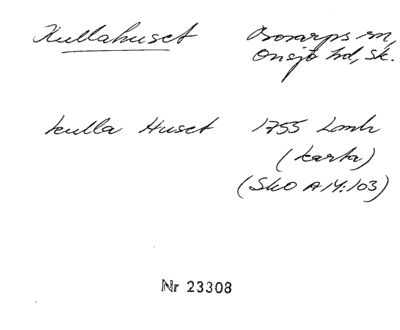 Kullahuset Bosarps sn,
Onsjö hd, Sk.
kulla Huset 1755 Lmh
(karta)
(SkO A14:103)
Nr 23308